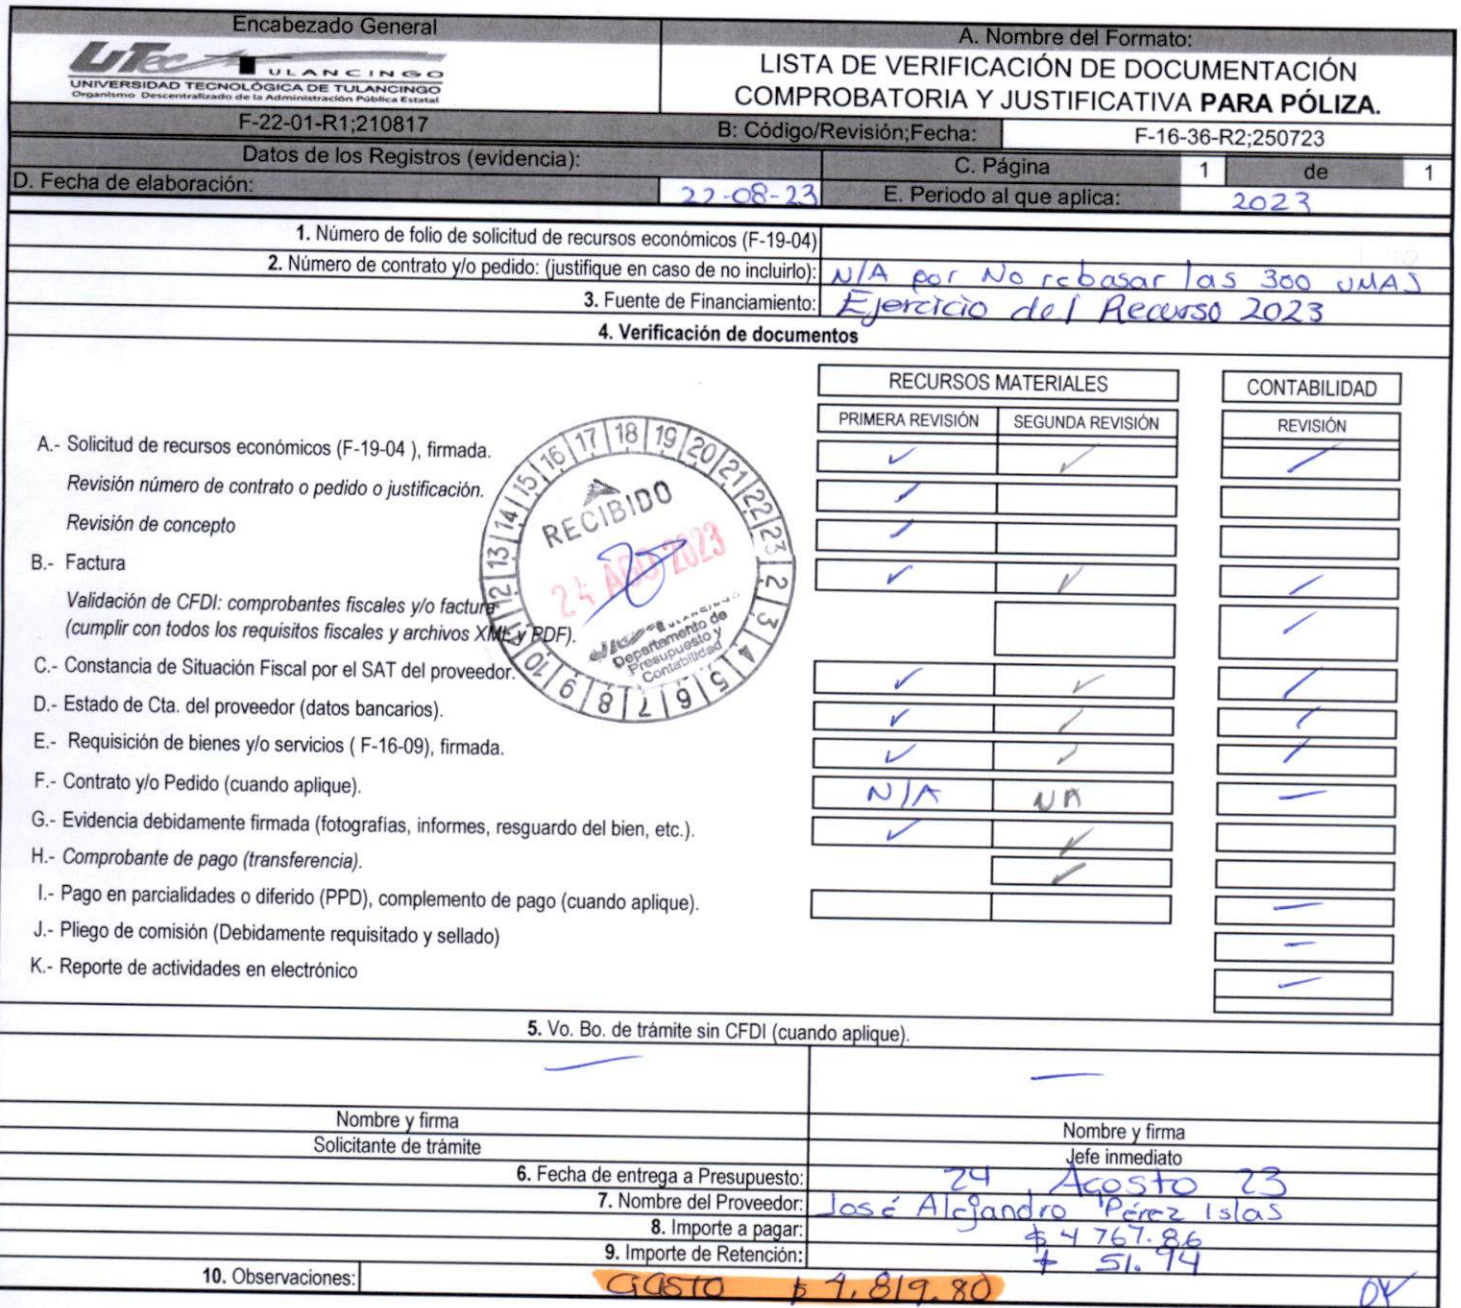 Encabezado General
A. Nombre del Formato:
UTec TULANCINGO
UNIVERSIDAD TECNOLÓGICA DE TULANCINGO
Organismo Descentralizado de la Administración Pública Estatal
LISTA DE VERIFICACIÓN DE DOCUMENTACIÓN
COMPROBATORIA Y JUSTIFICATIVA PARA PÓLIZA.
F-22-01-R1;210817
B: Código/Revisión;Fecha:
F-16-36-R2;250723
Datos de los Registros (evidencia):
C. Página 1 de 1
D. Fecha de elaboración: 22-08-23
E. Periodo al que aplica: 2023
1. Número de folio de solicitud de recursos económicos (F-19-04)
2. Número de contrato y/o pedido: (justifique en caso de no incluirlo): N/A por No rebasar las 300 UMAS
3. Fuente de Financiamiento: Ejercicio del Recurso 2023
4. Verificación de documentos
RECURSOS MATERIALES
CONTABILIDAD
PRIMERA REVISIÓN
SEGUNDA REVISIÓN
REVISIÓN
A.- Solicitud de recursos económicos (F-19-04 ), firmada.
Revisión número de contrato o pedido o justificación.
Revisión de concepto
B.- Factura
Validación de CFDI: comprobantes fiscales y/o factura
(cumplir con todos los requisitos fiscales y archivos XML y PDF).
C.- Constancia de Situación Fiscal por el SAT del proveedor.
D.- Estado de Cta. del proveedor (datos bancarios).
E.- Requisición de bienes y/o servicios ( F-16-09), firmada.
F.- Contrato y/o Pedido (cuando aplique). N/A NA
G.- Evidencia debidamente firmada (fotografías, informes, resguardo del bien, etc.).
H.- Comprobante de pago (transferencia).
I.- Pago en parcialidades o diferido (PPD), complemento de pago (cuando aplique).
J.- Pliego de comisión (Debidamente requisitado y sellado)
K.- Reporte de actividades en electrónico
2 3 4 5 6 7 8 9 10 11 12 13 14 15 16 17 18 19 20 21 22 23
RECIBIDO
24 AGO 2023
Departamento de
Presupuesto y
Contabilidad
5. Vo. Bo. de trámite sin CFDI (cuando aplique).
Nombre y firma
Solicitante de trámite
Nombre y firma
Jefe inmediato
6. Fecha de entrega a Presupuesto: 24 Agosto 23
7. Nombre del Proveedor: José Alejandro Pérez Islas
8. Importe a pagar: $ 4 767.86
9. Importe de Retención: + 51.94
10. Observaciones: GASTO $ 4,819.80